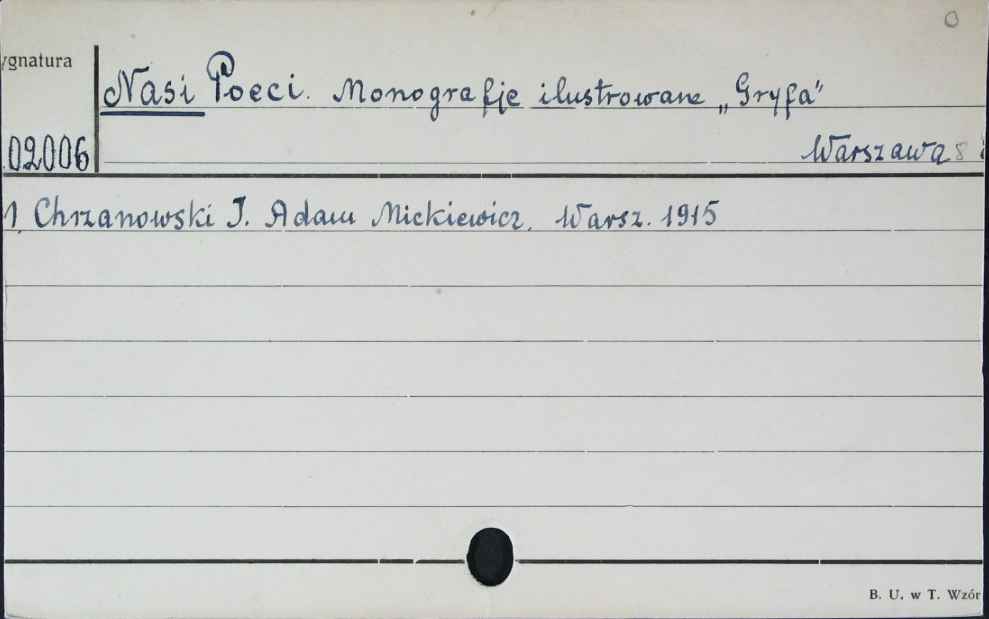 ygnatura
Nasi Poeci. Monografje ilustrowane „Gryfa"
02006
Warszawa 8
1, Chrzanowski I. Adam Mickiewicz. Warsz. 1915
B. U. w T. Wzór